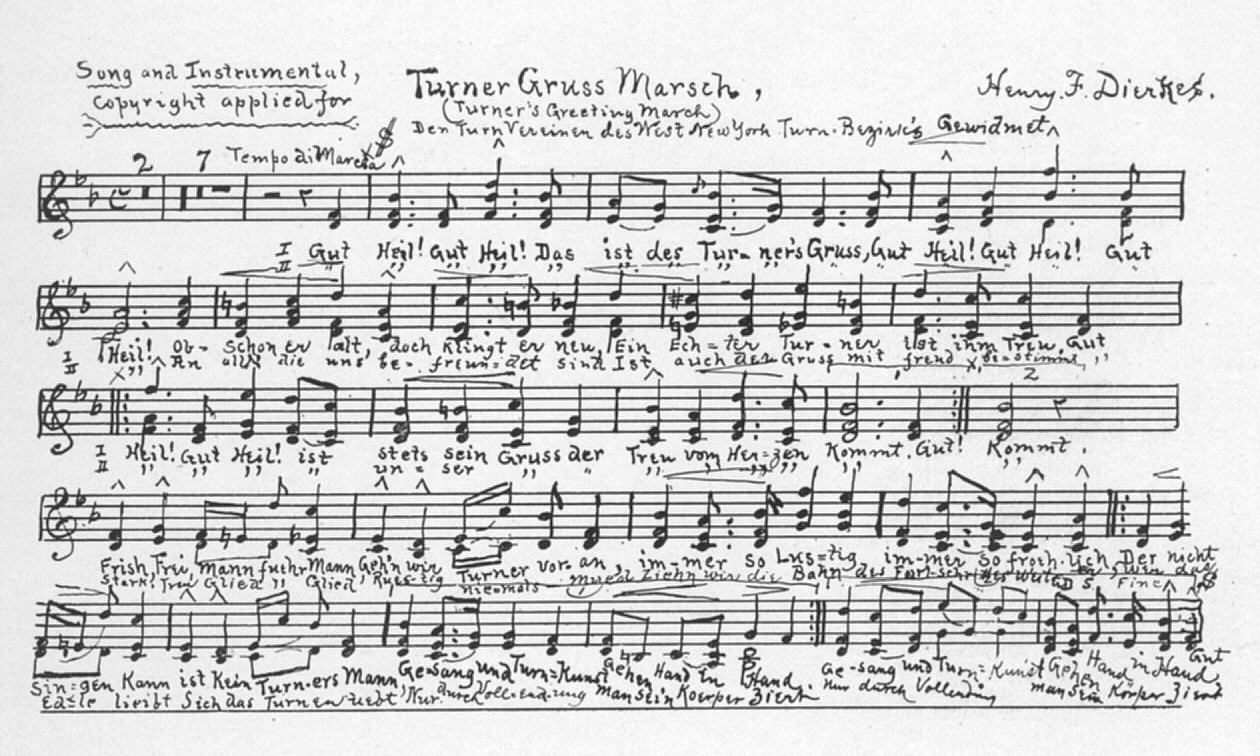 Song and Instrumental,
copyright applied for
Turner Gruss Marsch,
(Turner's Greeting March)
Henry. F. Dierkes.
Den Turn Vereinen des West New York Turn. Bezirk's Gewidmet
2 7 Tempo di Marcia
I Gut Heil! Gut Heil! Das ist des Tur- ner's Gruss, Gut Heil! Gut Heil! Gut
II
I Heil! Ob- schon er alt, doch klingt er neu, Ein Ech = ter Tur = ner ist ihm Treu, Gut
II An all die uns be- freun = det sind Ist auch der Gruss mit freud be = stimmt
2
I Heil! Gut Heil! ist stets sein Gruss der Treu vom Her = zen Kommt. Gut! Kommt.
II un = ser
Frish, Frei, Mann fuehr Mann Geh'n wir Turner vor an, im-mer so Lus = tig im-mer so froeh-lich Der nicht
Stark, Treu Glied Glied niemals Ziehn wir die Bahn des Fort-schrittes D S Fine
Sin = gen Kann ist Kein Turn-ers Mann Ge-sang und Turn = Kunst Gehen Hand in Hand. Ge-sang und Turn = Kunst Gehen Hand in Hand, Gut
Ed = le liebt Sich das Turnen uebt Nur durch Voll-endung Man Sein Koerper Ziert nur durch Vollendung man Sein Körper Ziert